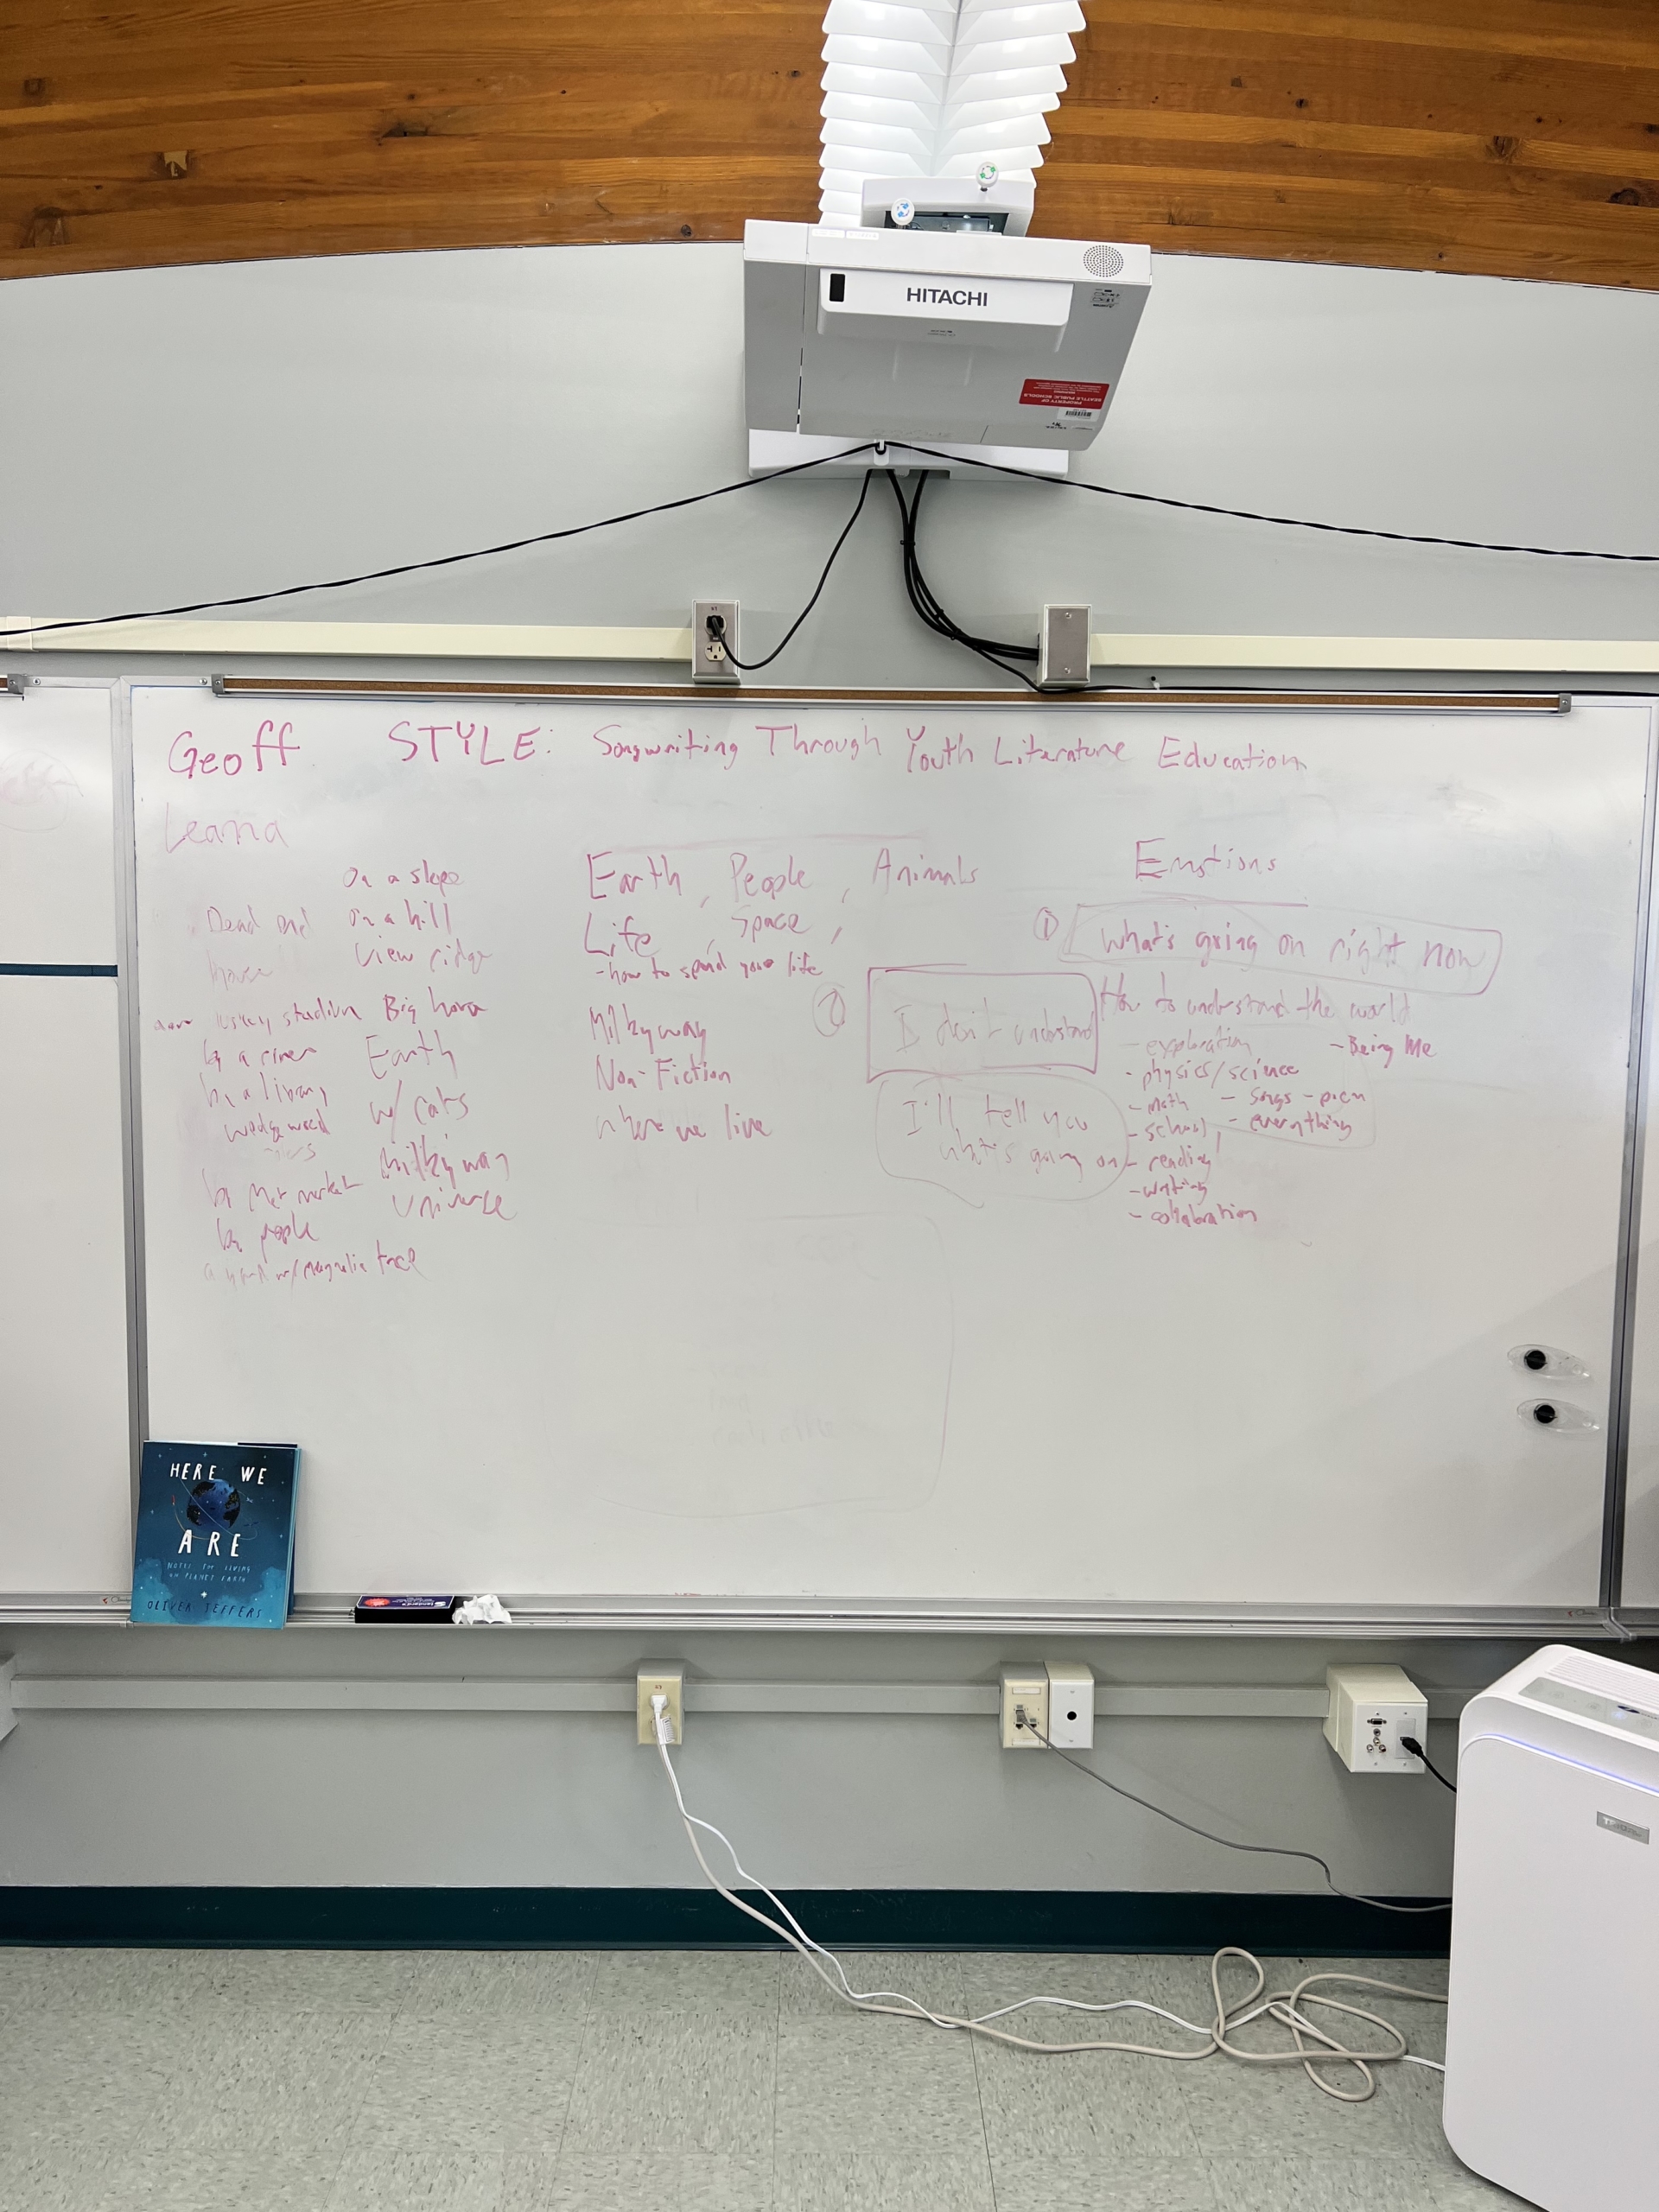 HITACHI
PROPERTY OF
SEATTLE PUBLIC SCHOOLS
Geoff
STYLE: Songwriting Through Youth Literature Education
Leana
On a slope
Dead end
on a hill
house
View ridge
husky stadium
Big house
by a river
Earth
by a library
w/ cats
wedgewood
Milkyway
by Met market
Universe
by people
a yard w/ magnolia tree
Earth, People, Animals
Life, Space,
- how to spend your life
Milkyway
Non-Fiction
where we live
Emotions
① What's going on right now
②
I don't understand
I'll tell you
what's going on
How to understand the world
- exploration
- Being Me
- physics/science
- math
- songs - poem
- school
- everything
- reading
- writing
- collaboration
HERE WE
ARE
NOTES FOR LIVING
ON PLANET EARTH
OLIVER JEFFERS